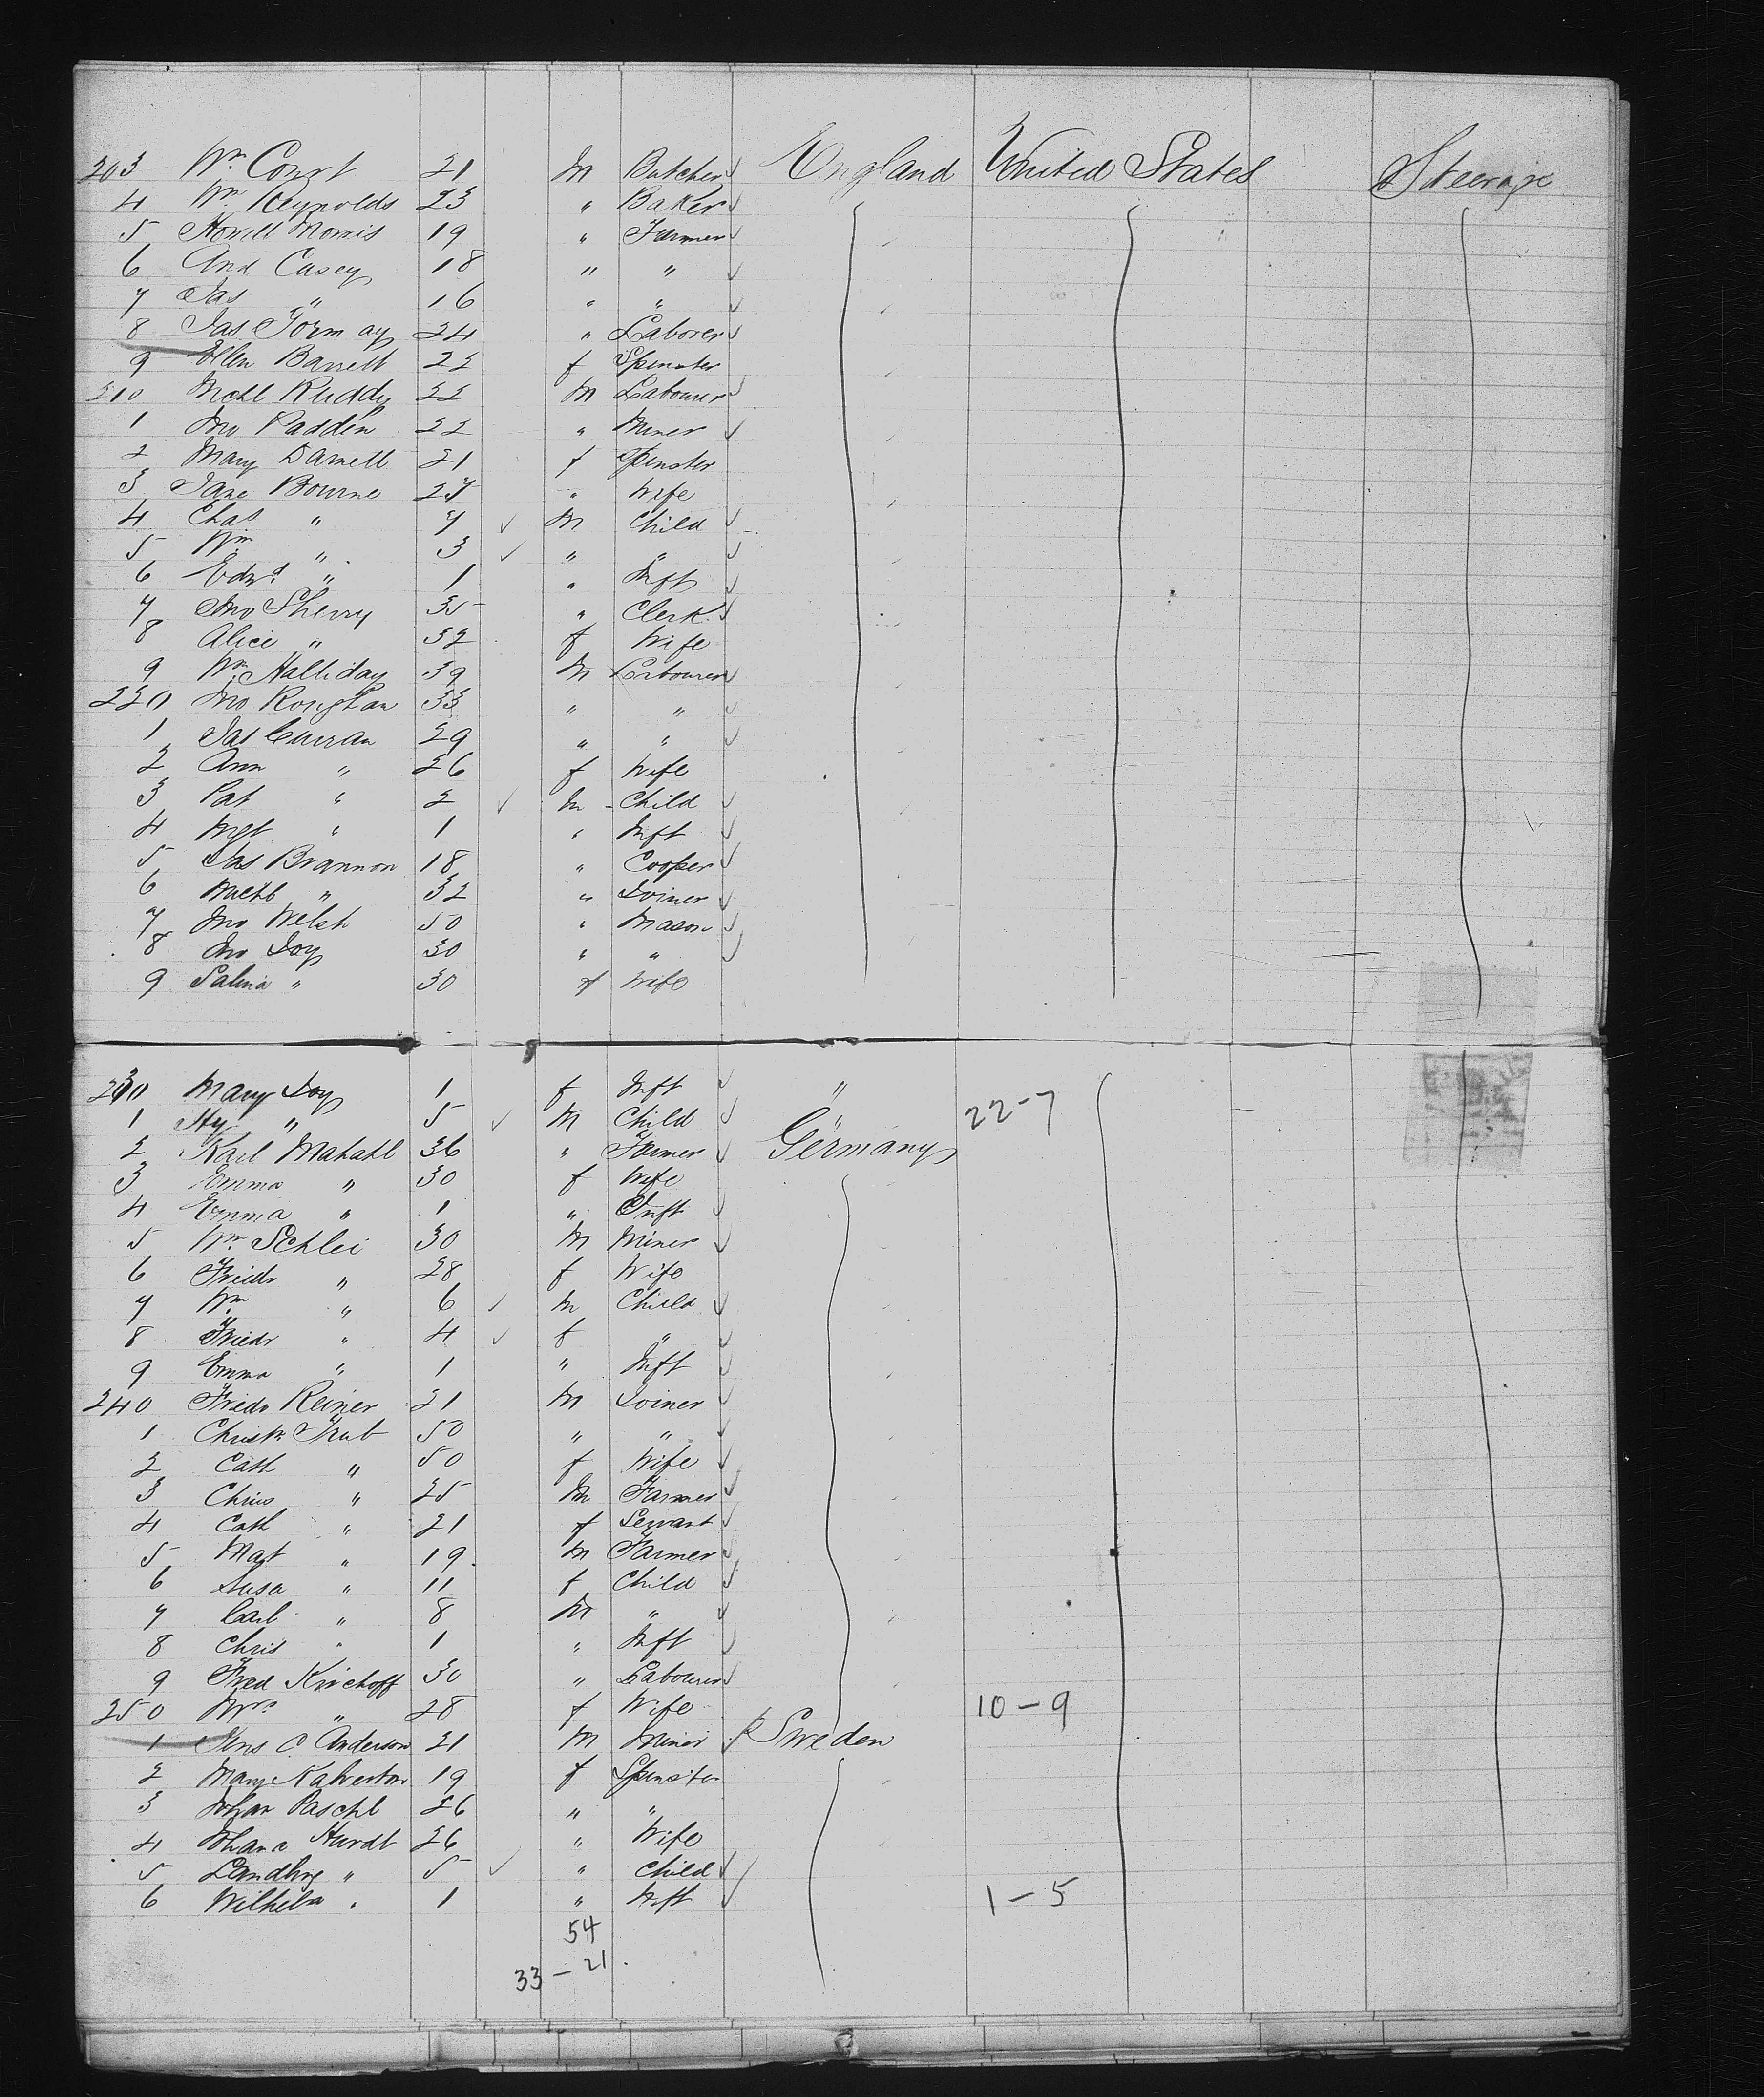 203 Wm Court 21 M Butcher England United States Steerage
4 Wm Reynolds 23 " Baker
5 Howell Morris 19 " Farmer
6 And Casey 18 " "
7 Jas " 16 " "
8 Jas Gormay 24 " Laborer
9 Ellen Barrett 22 f Spinster
210 Michl Ruddy 22 M Labourer
1 Jno Padden 22 " Miner
2 Mary Darnell 21 f Spinster
3 Jane Bourne 27 " Wife
4 Chas " 7 M Child
5 Wm " 3 " "
6 Edwd " 1 " Inft
7 Jno Sherry 35 " Clerk
8 Alice " 32 f Wife
9 Wm Halliday 39 M Labourer
220 Jno Roughan 33 " "
1 Jas Curran 29 " "
2 Ann " 26 f Wife
3 Pat " 2 M Child
4 Mgt " 1 " Inft
5 Jas Brannon 18 " Cooper
6 Michl " 32 " Joiner
7 Jno Welsh 50 " Mason
8 Jno Joy 30 " "
9 Salina " 30 f Wife
230 Mary Joy 1 f Inft "
1 Hy " 5 M Child 22-7
2 Karl Mahahl 36 " Farmer Germany
3 Emma " 30 f Wife
4 Emma " 1 " Inft
5 Wm Schlei 30 M Miner
6 Friedr " 28 f Wife
7 Wm " 6 M Child
8 Friedr " 4 f "
9 Emma " 1 " Inft
240 Friedr Reiner 21 M Joiner
1 Christn 50 " "
2 Cath " 50 f Wife
3 Chris " 25 M Farmer
4 Cath " 21 f Servant
5 Mat " 19 M Farmer
6 Susa " 11 f Child
7 Carl " 8 M "
8 Chris " 1 " Inft
9 Fred Kirchoff 30 " Labourer
250 Mrs " 28 f Wife 10-9
1 Jens C. Anderson 21 M Miner Sweden
2 Mary Kalverton 19 f Spinster
3 Johan Paschl 26 " "
4 Johana Hurdt 26 " Wife
5 " 5 " Child
6 Wilhelm " 1 " Inft 1-5
54
33-21